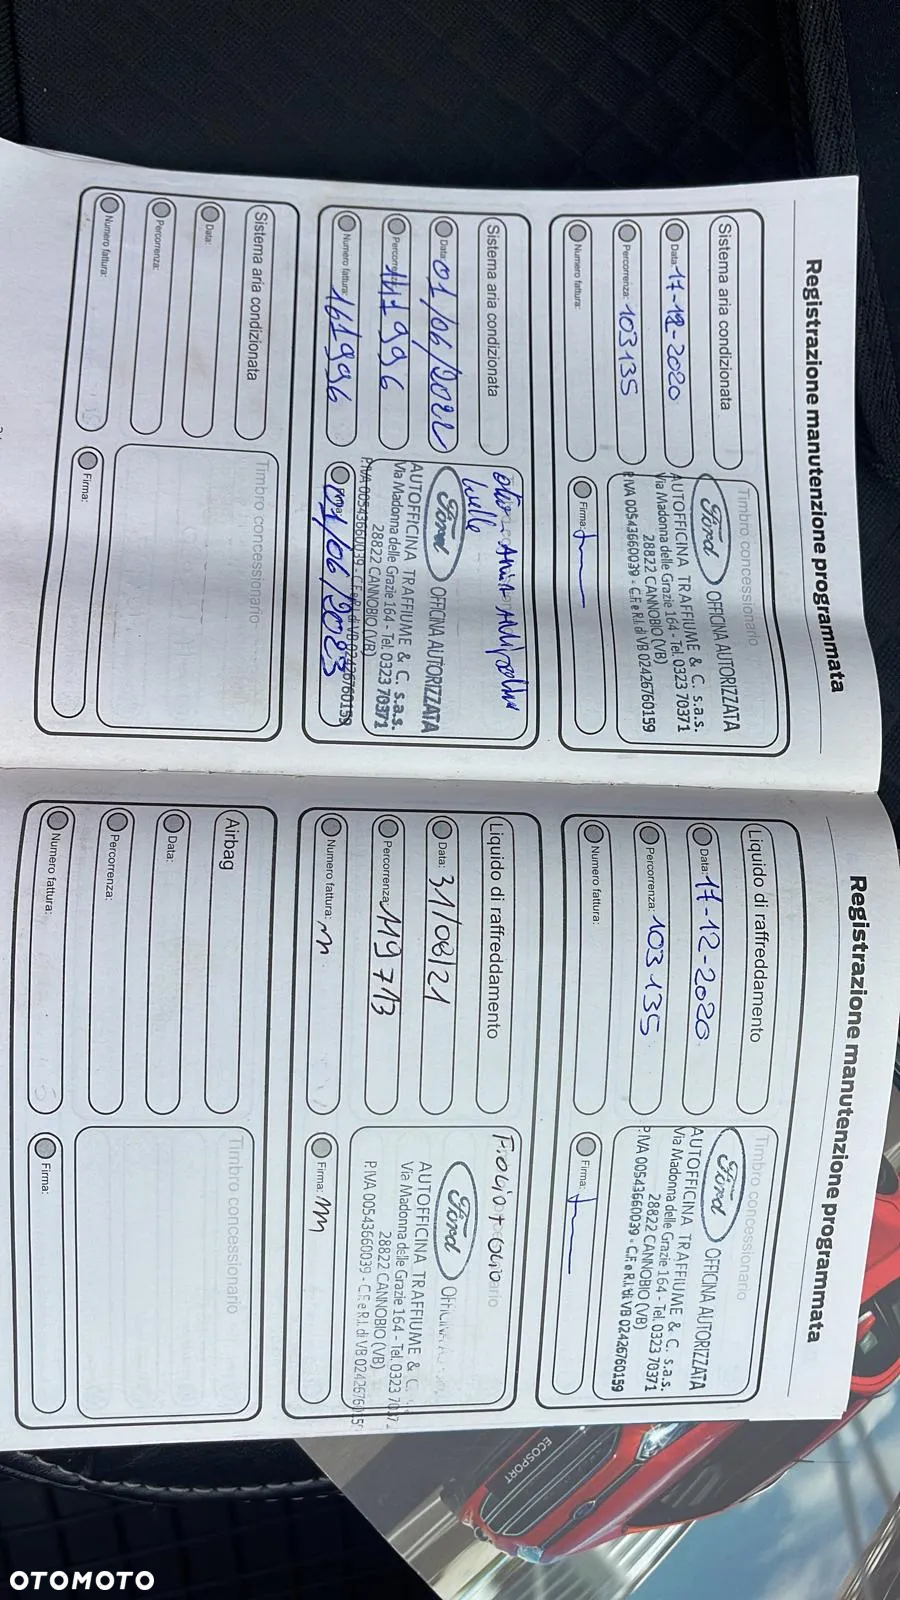 Registrazione manutenzione programmata
Sistema aria condizionata
Data: 17-12-2020
Percorrenza: 103135
Numero fattura:
Timbro concessionario
Ford OFFICINA AUTORIZZATA
AUTOFFICINA TRAFFIUME & C. s.a.s.
Via Madonna delle Grazie 164 - Tel. 0323 70371
28822 CANNOBIO (VB)
P.IVA 00543660039 - C.F. e R.I. di VB 02426760159
Firma:
Sistema aria condizionata
Data: 01/06/2022
Percorrenza: 141996
Numero fattura: 161996
olio
Ford OFFICINA AUTORIZZATA
AUTOFFICINA TRAFFIUME & C. s.a.s.
Via Madonna delle Grazie 164 - Tel. 0323 70371
28822 CANNOBIO (VB)
P.IVA 00543660039 - C.F. e R.I. di VB 02426760159
01/06/2023
Sistema aria condizionata
Data:
Percorrenza:
Numero fattura:
Timbro concessionario
Firma:
Registrazione manutenzione programmata
Liquido di raffreddamento
Data: 17-12-2020
Percorrenza: 103135
Numero fattura:
Timbro concessionario
Ford OFFICINA AUTORIZZATA
AUTOFFICINA TRAFFIUME & C. s.a.s.
Via Madonna delle Grazie 164 - Tel. 0323 70371
28822 CANNOBIO (VB)
P.IVA 00543660039 - C.F. e R.I. di VB 02426760159
Firma:
Liquido di raffreddamento
Data: 31/08/21
Percorrenza: 119713
Numero fattura:
Ford
AUTOFFICINA TRAFFIUME & C.
Via Madonna delle Grazie 164 - Tel. 0323
28822 CANNOBIO (VB)
P.IVA 00543660039 - C.F. e R.I. di VB 02426760159
Firma:
Airbag
Data:
Percorrenza:
Numero fattura:
Timbro concessionario
Firma:
ECOSPORT
OTOMOTO